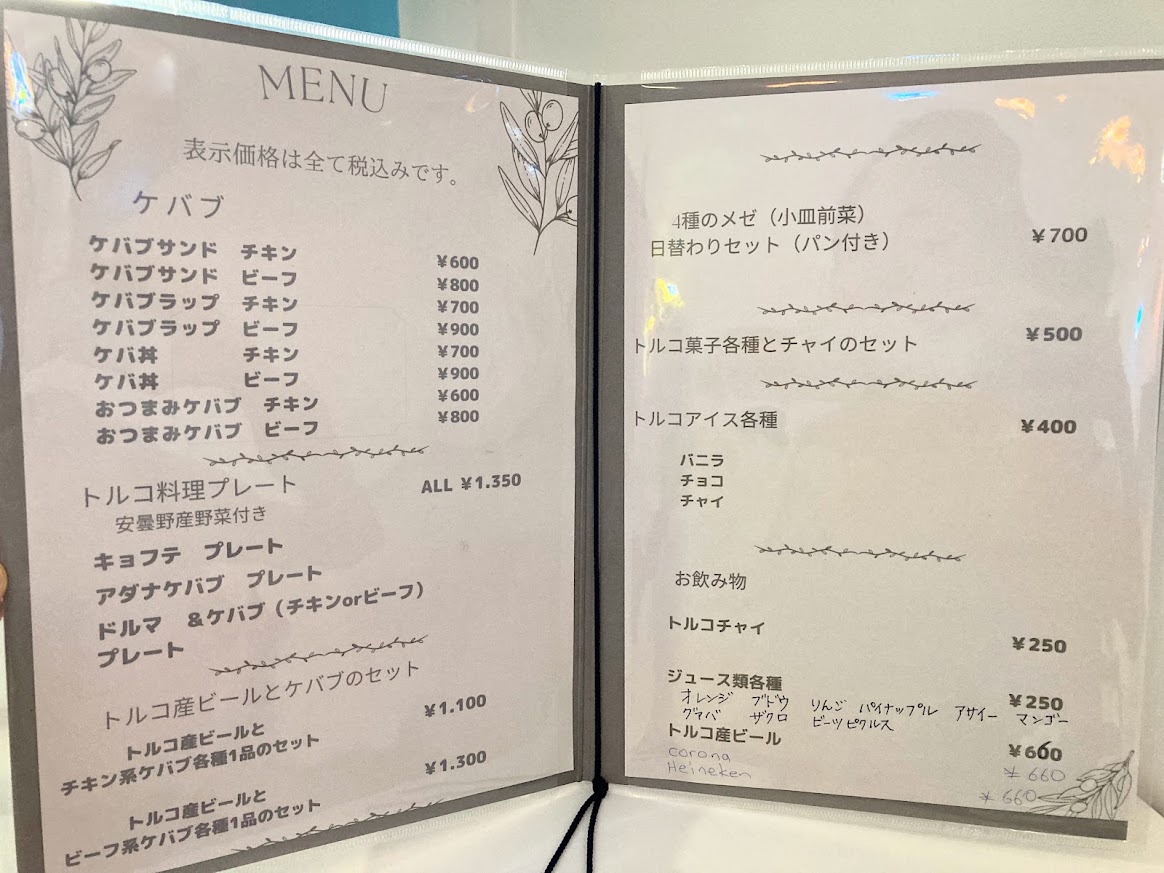 MENU
表示価格は全て税込みです。
ケバブ
ケバブサンド チキン ¥600
ケバブサンド ビーフ ¥800
ケバブラップ チキン ¥700
ケバブラップ ビーフ ¥900
ケバ丼 チキン ¥700
ケバ丼 ビーフ ¥900
おつまみケバブ チキン ¥600
おつまみケバブ ビーフ ¥800
トルコ料理プレート ALL ¥1.350
安曇野産野菜付き
キョフテ プレート
アダナケバブ プレート
ドルマ &ケバブ（チキンorビーフ）
プレート
トルコ産ビールとケバブのセット
トルコ産ビールと ¥1.100
チキン系ケバブ各種1品のセット
トルコ産ビールと ¥1.300
ビーフ系ケバブ各種1品のセット
4種のメゼ（小皿前菜）
日替わりセット（パン付き） ¥700
トルコ菓子各種とチャイのセット ¥500
トルコアイス各種 ¥400
バニラ
チョコ
チャイ
お飲み物
トルコチャイ ¥250
ジュース類各種 ¥250
オレンジ ブドウ りんご パイナップル アサイー マンゴー
グァバ ザクロ ビーツピクルス
トルコ産ビール ¥660
corona ¥660
Heineken ¥660